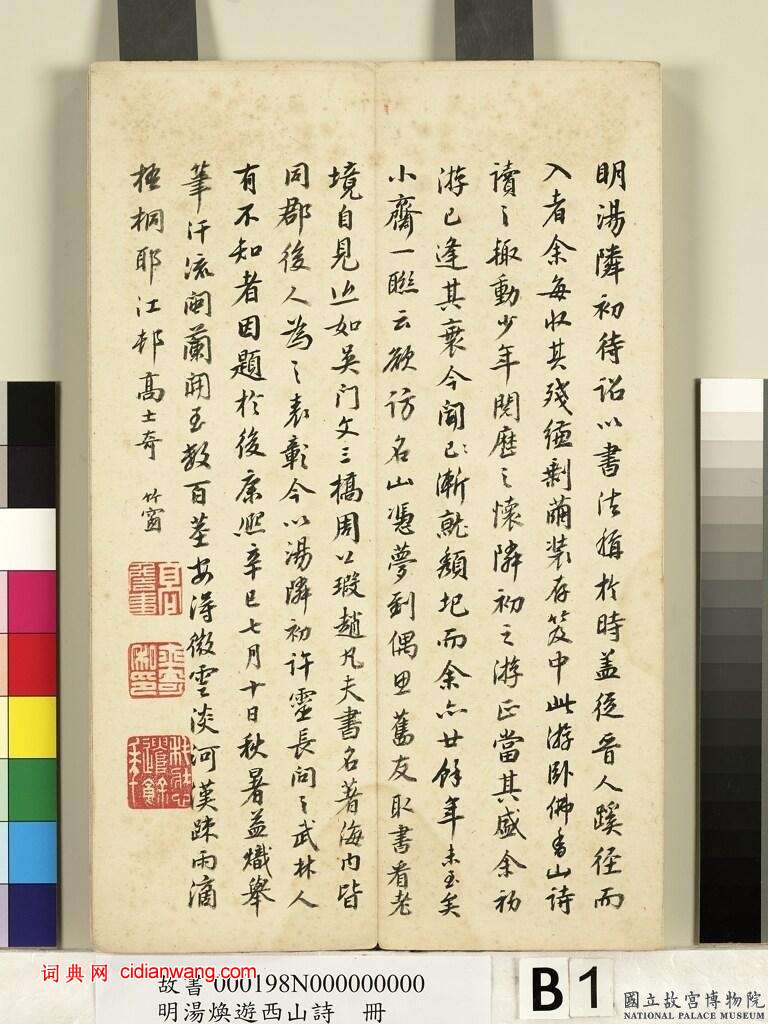 明湯隣初待詔以書法稱於時盖從晋人蹊徑而
入者余每收其殘縑剩繭装存笈中此游卧佛香山詩
讀之輙動少年閱歷之懷隣初之游正當其盛余初
游已逢其衰今聞已漸就頹圯而余亦廿餘年未至矣
小齋一聮云欲访名山憑夢到偶思舊友取書看老
境自見近如吴门文三橋周公瑕趙凡夫書名著海内皆
同郡後人為之表彰今以湯隣初许靈長问之武林人
有不知者因題於後康熙辛巳七月十日秋暑益熾舉
筆汗流阅蘭開至数百莖安得微雲淡河漢踈雨滴
梧桐耶江邨高士奇
竹窗
词典网 cidianwang.com
故書 000198N000000000
明湯煥遊西山詩 冊
B1
國立故宮博物院
NATIONAL PALACE MUSEUM